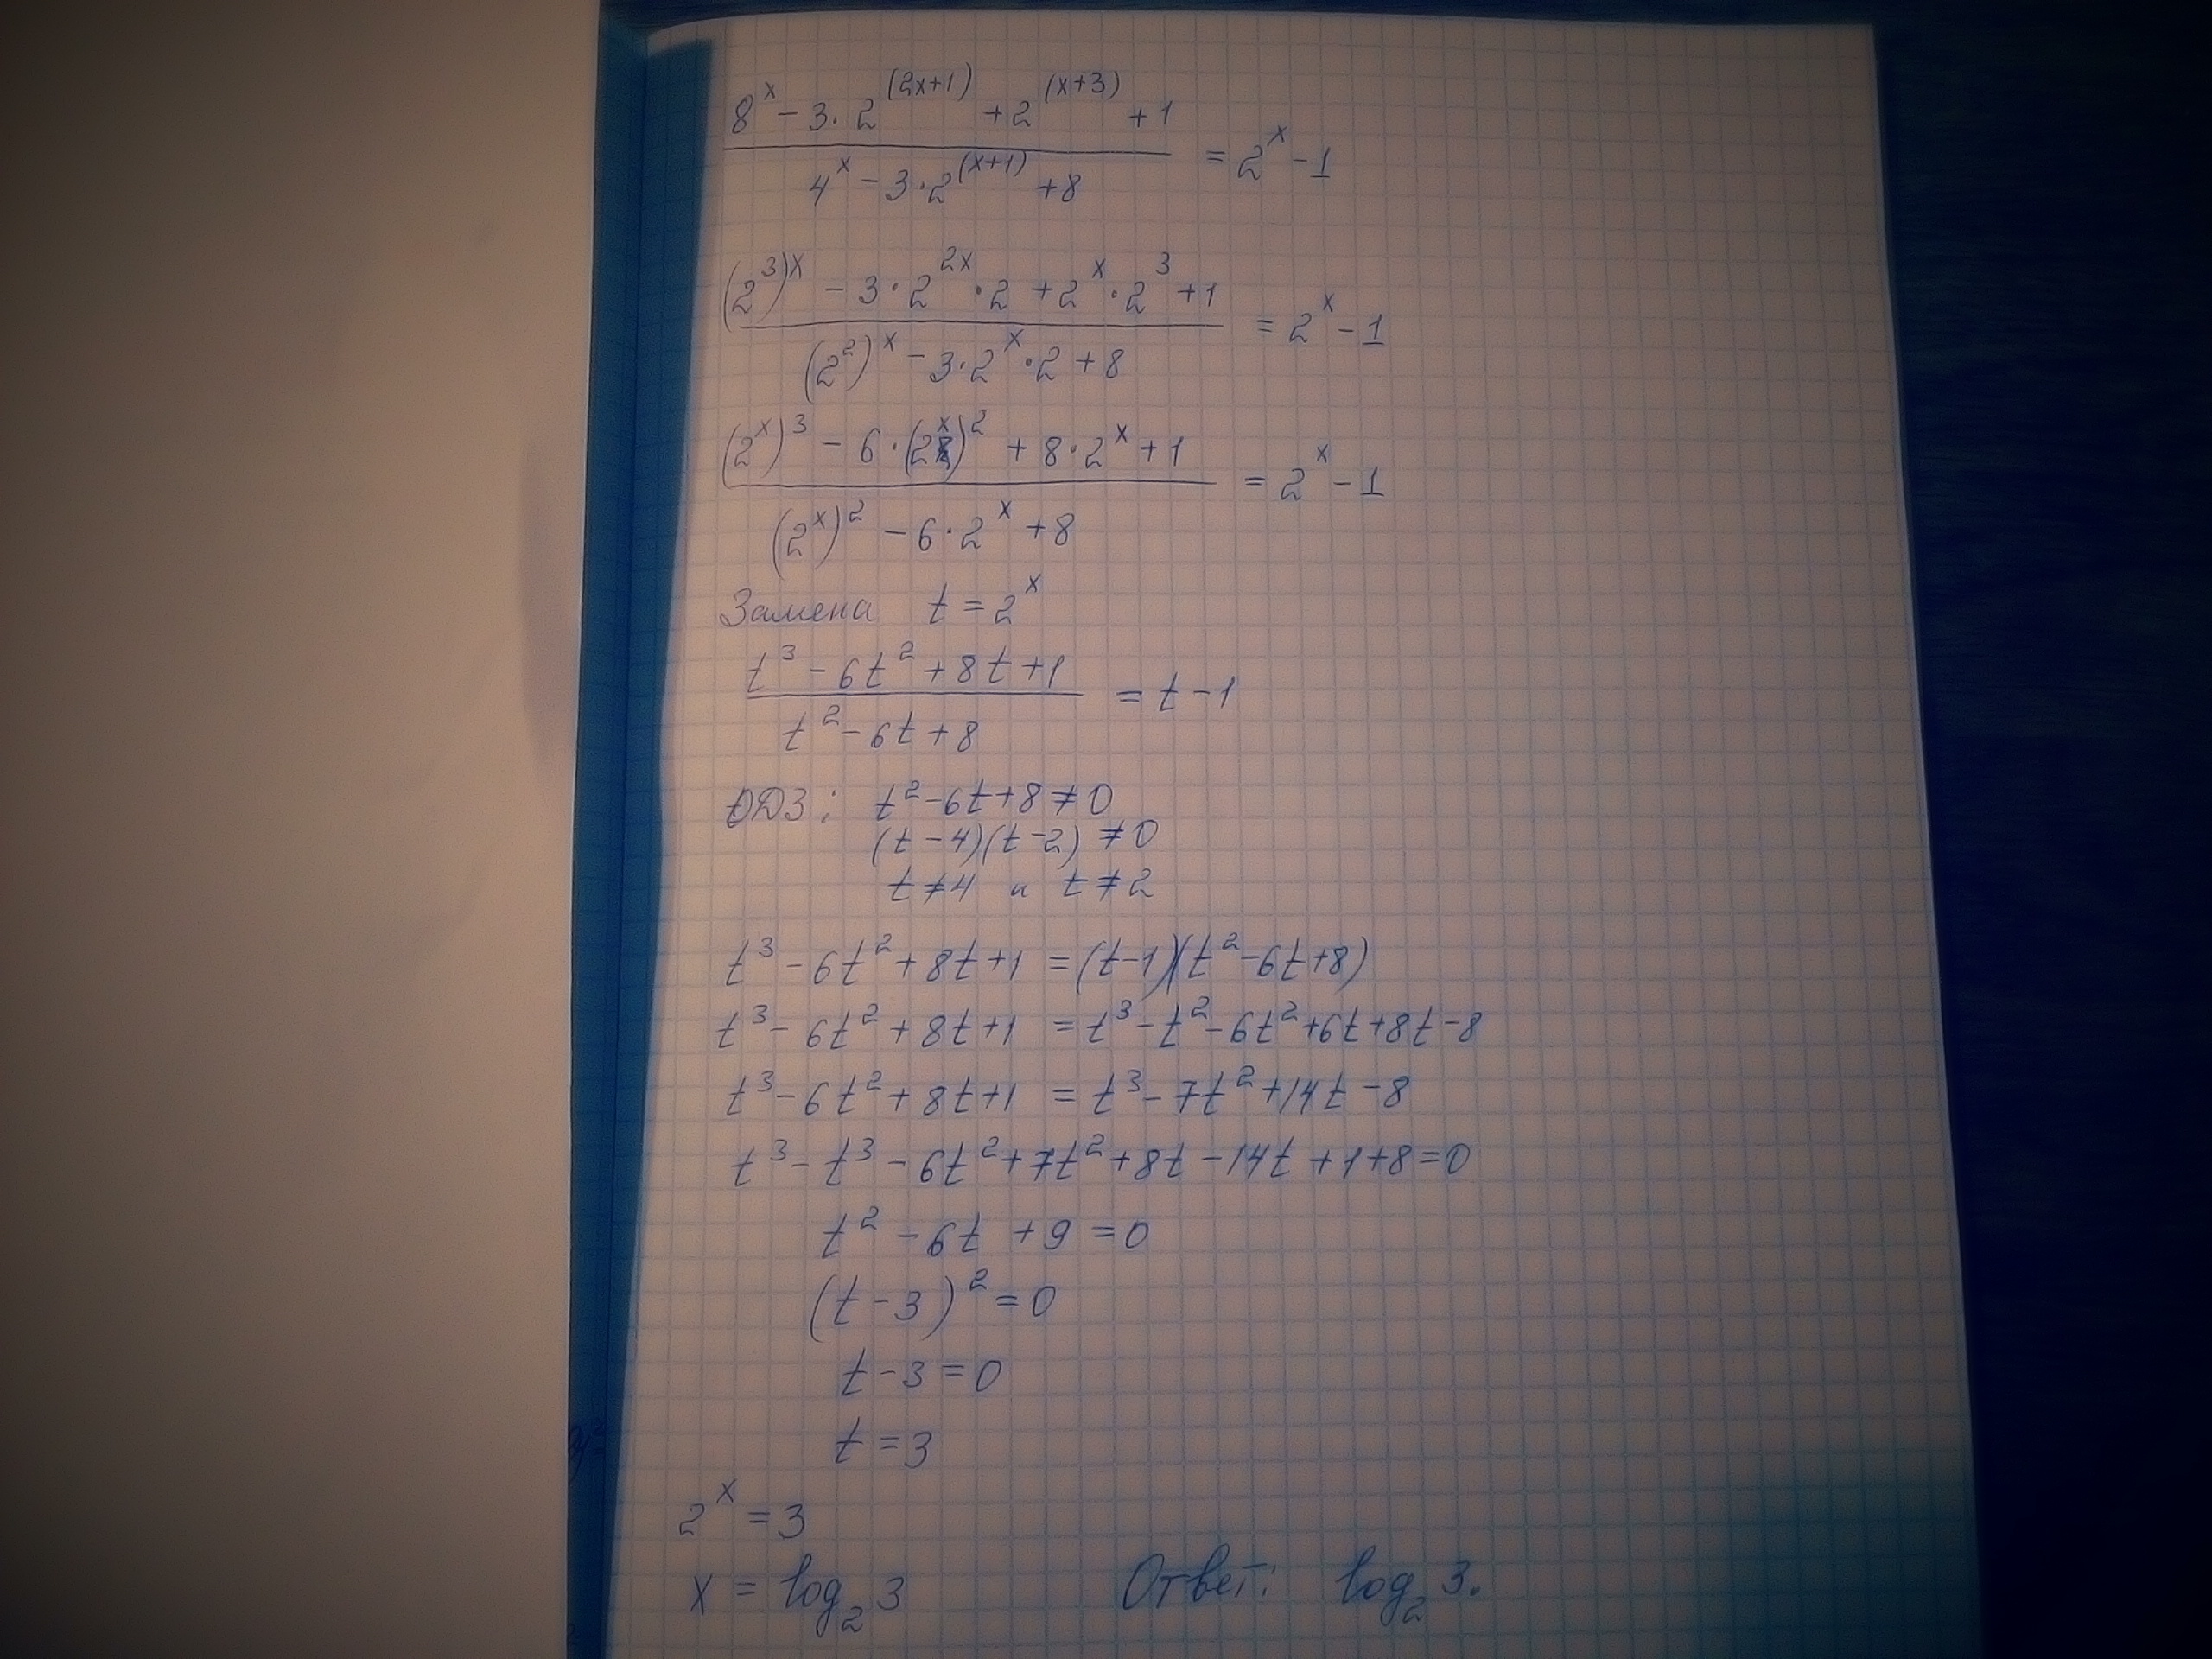 (8^x - 3·2^(2x+1) + 2^(x+3) + 1) / (4^x - 3·2^(x+1) + 8) = 2^x - 1
((2^3)^x - 3·2^2x·2 + 2^x·2^3 + 1) / ((2^2)^x - 3·2^x·2 + 8) = 2^x - 1
((2^x)^3 - 6·(2^x)^2 + 8·2^x + 1) / ((2^x)^2 - 6·2^x + 8) = 2^x - 1
Замена t = 2^x
(t^3 - 6t^2 + 8t + 1) / (t^2 - 6t + 8) = t - 1
ОДЗ: t^2 - 6t + 8 ≠ 0
(t - 4)(t - 2) ≠ 0
t ≠ 4 и t ≠ 2
t^3 - 6t^2 + 8t + 1 = (t - 1)(t^2 - 6t + 8)
t^3 - 6t^2 + 8t + 1 = t^3 - t^2 - 6t^2 + 6t + 8t - 8
t^3 - 6t^2 + 8t + 1 = t^3 - 7t^2 + 14t - 8
t^3 - t^3 - 6t^2 + 7t^2 + 8t - 14t + 1 + 8 = 0
t^2 - 6t + 9 = 0
(t - 3)^2 = 0
t - 3 = 0
t = 3
2^x = 3
x = log_2 3 Ответ: log_2 3.